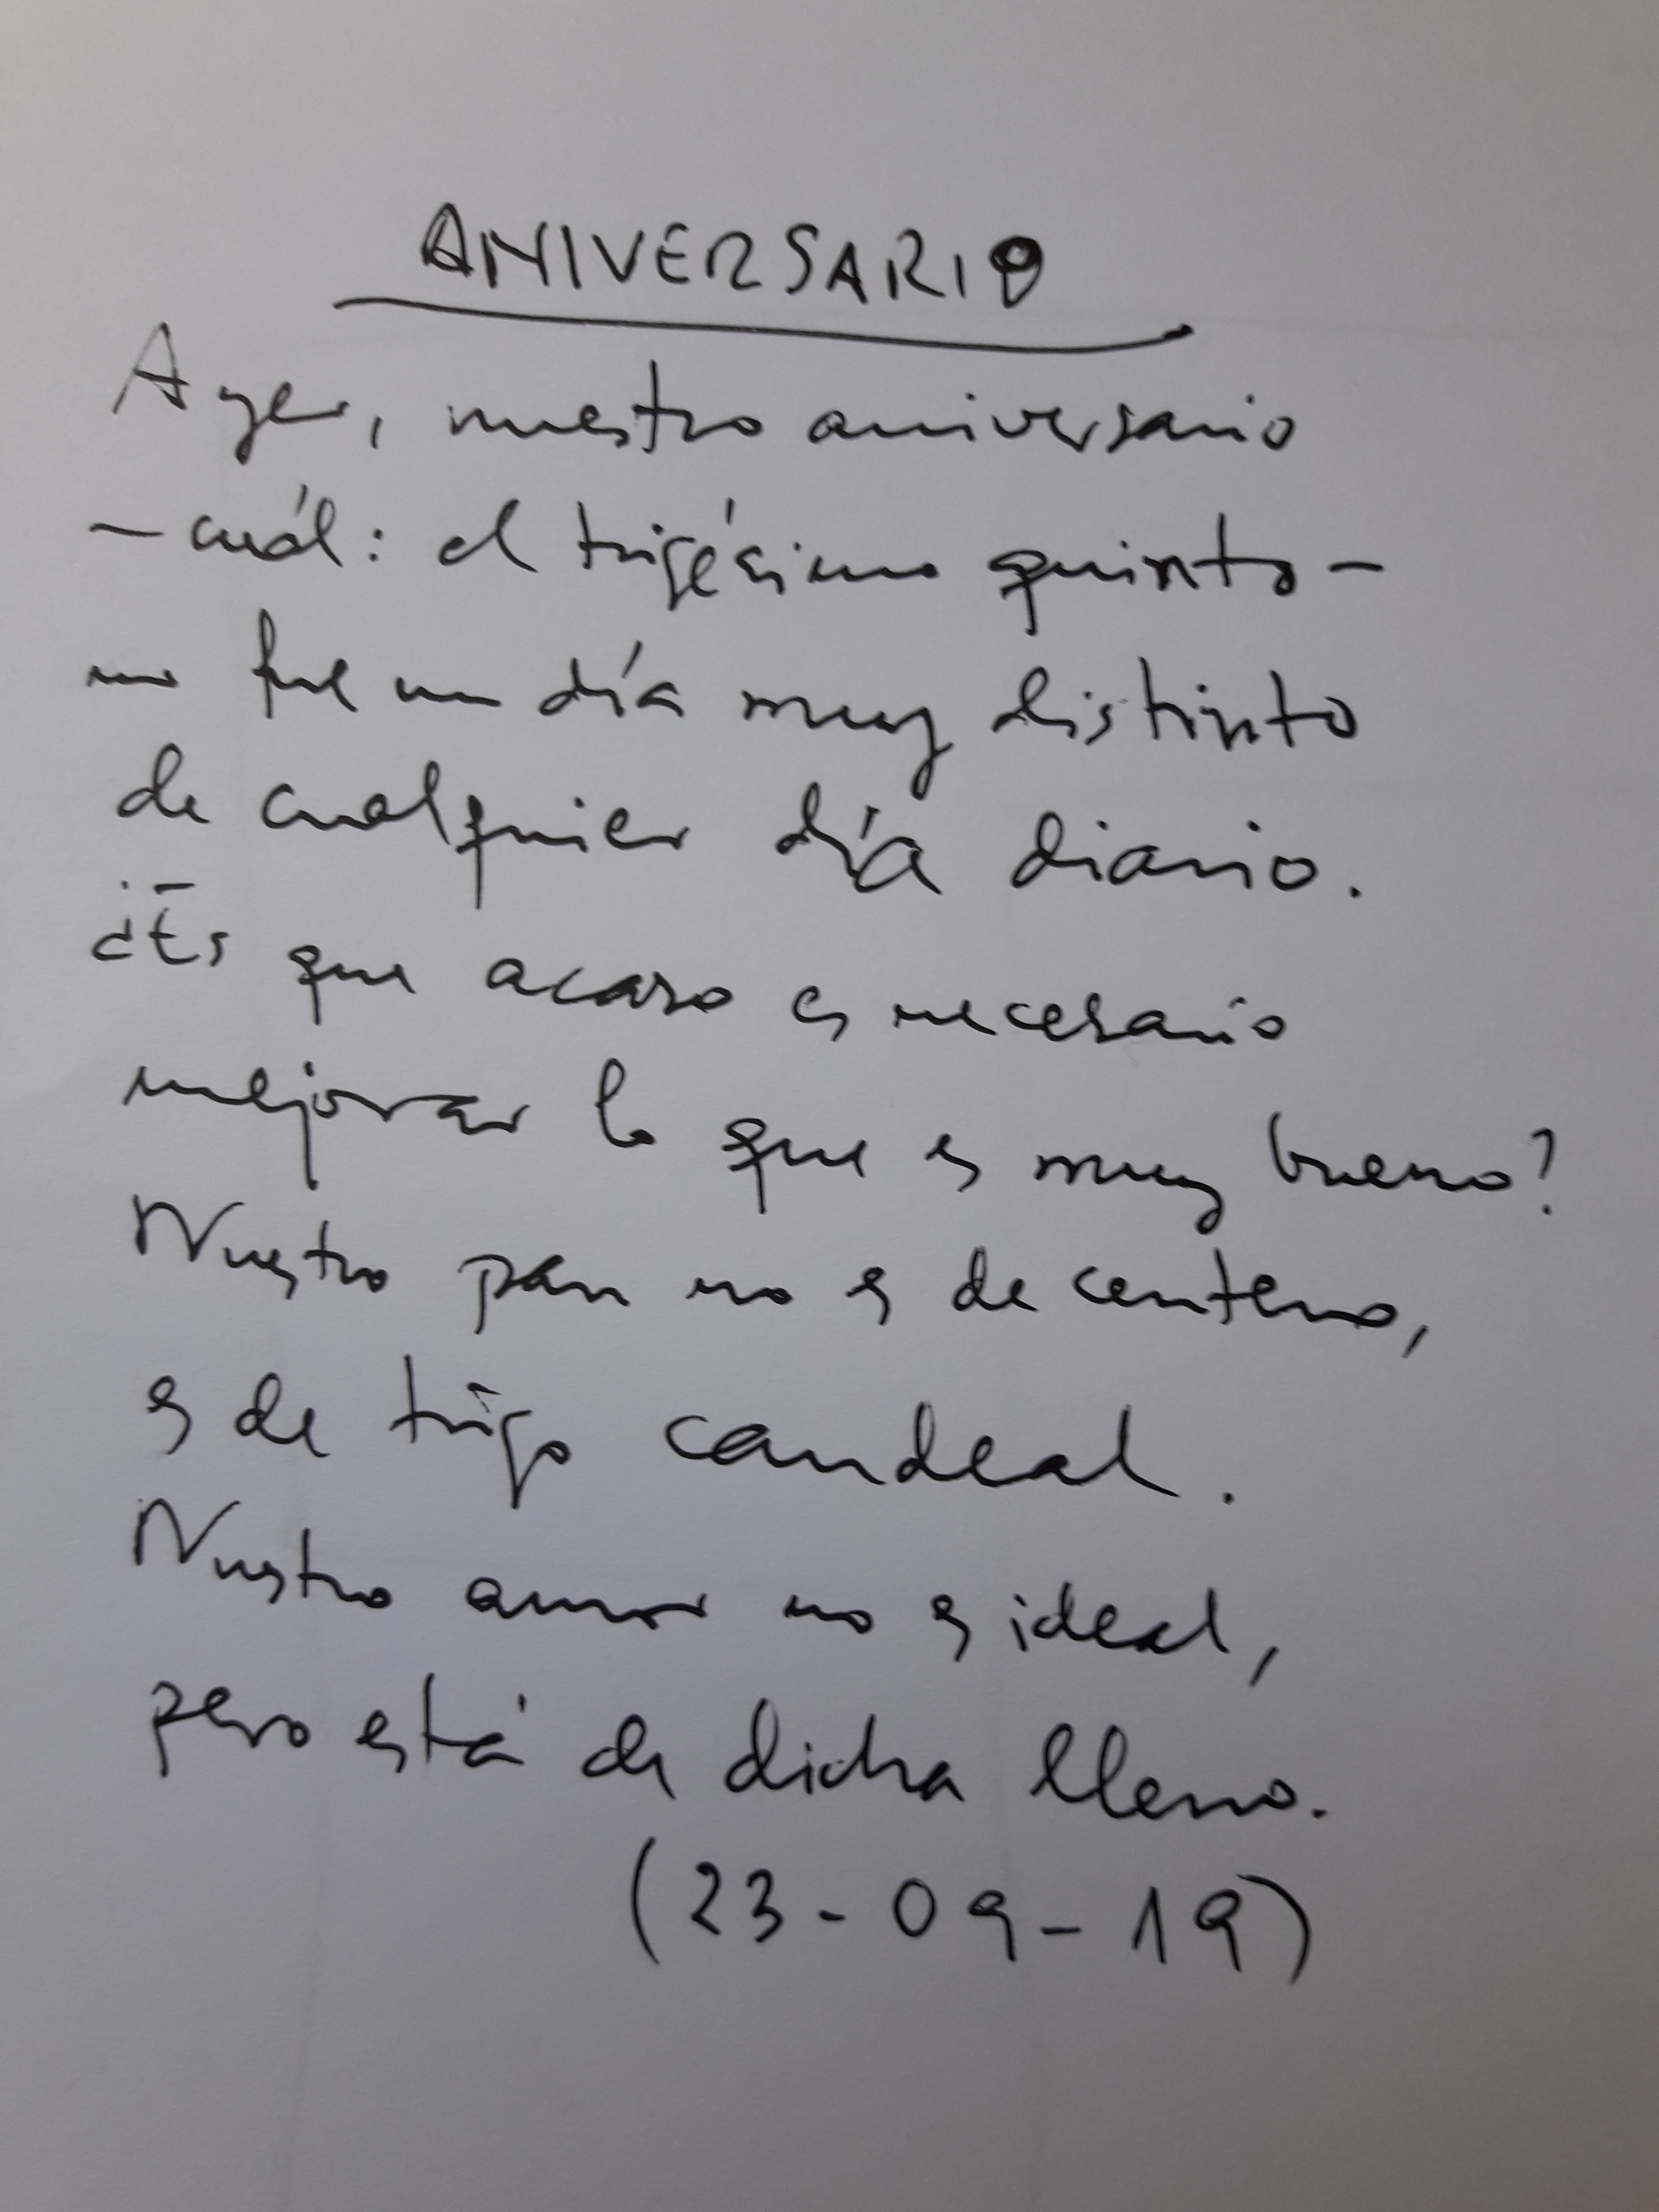 ANIVERSARIO
Ayer, nuestro aniversario
- cuál: el trigésimo quinto -
no fue un día muy distinto
de cualquier día diario.
¿Es que acaso es necesario
mejorar lo que es muy bueno?
Nuestro pan no es de centeno,
es de trigo candeal.
Nuestro amor no es ideal,
pero está de dicha lleno.
(23-09-19)